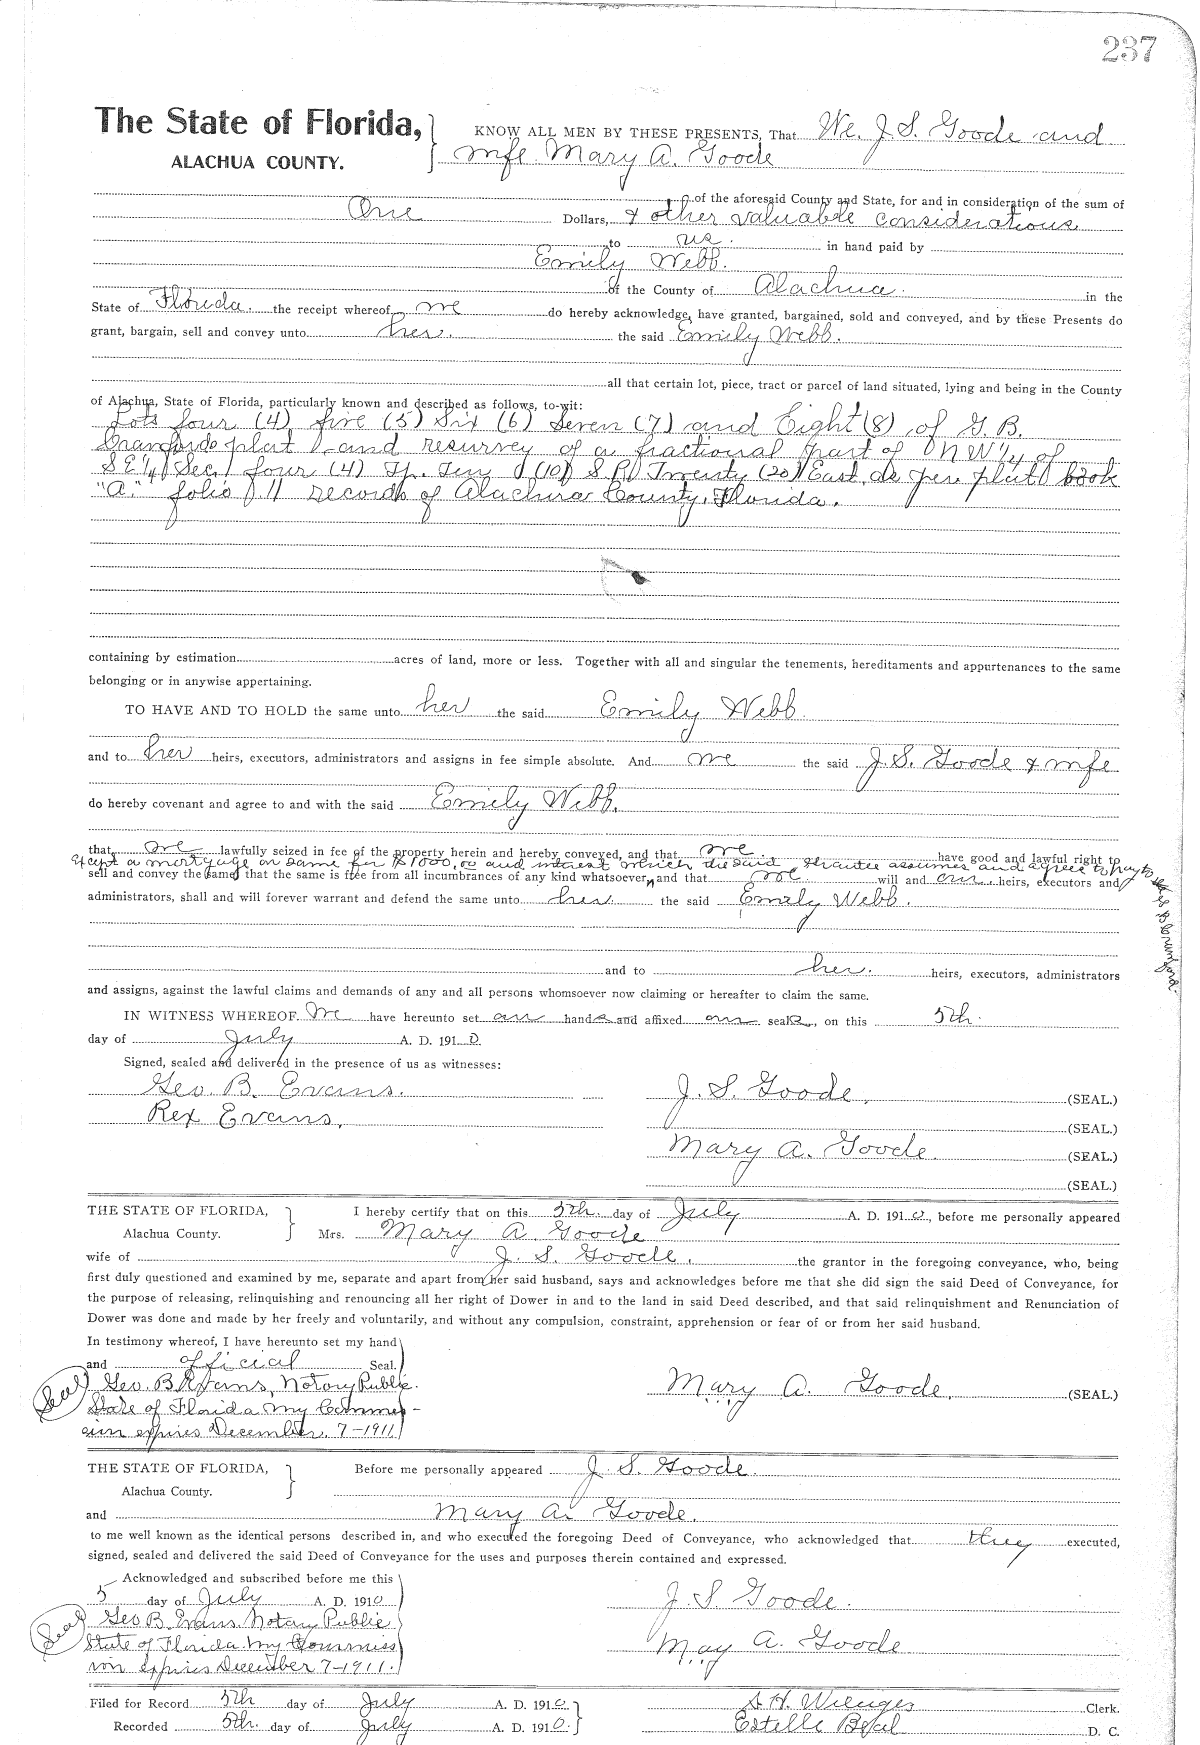 237
The State of Florida, KNOW ALL MEN BY THESE PRESENTS, That We, J. S. Goode and
ALACHUA COUNTY. wife Mary A. Goode
of the aforesaid County and State, for and in consideration of the sum of
One Dollars, & other valuable considerations
to us. in hand paid by
Emily Webb.
of the County of Alachua. in the
State of Florida. the receipt whereof we do hereby acknowledge, have granted, bargained, sold and conveyed, and by these Presents do
grant, bargain, sell and convey unto her. the said Emily Webb.
all that certain lot, piece, tract or parcel of land situated, lying and being in the County
of Alachua, State of Florida, particularly known and described as follows, to-wit:
Lots four (4) five (5) Six (6) Seven (7) and Eight (8) of G. B.
Crawfords plat and resurvey of a fractional part of NW¼ of
SE¼ Sec. four (4) Tp. Ten (10) S R. Twenty (20) East, as per plat book
"A." folio 11 records of Alachua County, Florida.
containing by estimation acres of land, more or less. Together with all and singular the tenements, hereditaments and appurtenances to the same
belonging or in anywise appertaining.
TO HAVE AND TO HOLD the same unto her the said Emily Webb
and to her heirs, executors, administrators and assigns in fee simple absolute. And we the said J. S. Goode & wife
do hereby covenant and agree to and with the said Emily Webb.
that we lawfully seized in fee of the property herein and hereby conveyed, and that we have good and lawful right to
Except a mortgage on same for $1000.00 and interest which the said Grantee assumes and agree to pay to G B Crawford.
sell and convey the same; that the same is free from all incumbrances of any kind whatsoever, and that we will and our heirs, executors and
administrators, shall and will forever warrant and defend the same unto her the said Emily Webb.
and to her. heirs, executors, administrators
and assigns, against the lawful claims and demands of any and all persons whomsoever now claiming or hereafter to claim the same.
IN WITNESS WHEREOF We have hereunto set our hands and affixed our seals, on this 5th.
day of July A. D. 1910.
Signed, sealed and delivered in the presence of us as witnesses:
Geo. B. Evans. J. S. Goode. (SEAL.)
Rex Evans. (SEAL.)
Mary A. Goode. (SEAL.)
(SEAL.)
THE STATE OF FLORIDA, I hereby certify that on this 5th. day of July A. D. 1910, before me personally appeared
Alachua County. Mrs. Mary A. Goode
wife of J. S. Goode. the grantor in the foregoing conveyance, who, being
first duly questioned and examined by me, separate and apart from her said husband, says and acknowledges before me that she did sign the said Deed of Conveyance, for
the purpose of releasing, relinquishing and renouncing all her right of Dower in and to the land in said Deed described, and that said relinquishment and Renunciation of
Dower was done and made by her freely and voluntarily, and without any compulsion, constraint, apprehension or fear of or from her said husband.
In testimony whereof, I have hereunto set my hand
and official Seal.
Seal Geo. B Evans, Notary Public. Mary A. Goode. (SEAL.)
State of Florida My Commis-
sion expires December, 7-1911
THE STATE OF FLORIDA, Before me personally appeared J. S. Goode.
Alachua County.
and Mary A. Goode.
to me well known as the identical persons described in, and who executed the foregoing Deed of Conveyance, who acknowledged that they executed,
signed, sealed and delivered the said Deed of Conveyance for the uses and purposes therein contained and expressed.
Acknowledged and subscribed before me this
5 day of July A. D. 1910 J. S. Goode.
Seal Geo B. Evans Notary Public
State of Florida. My Commiss May A. Goode
ion expires December 7-1911.
Filed for Record 5th day of July A. D. 1910 S. H. Wienges Clerk.
Recorded 5th. day of July A. D. 1910. Estelle D. C.